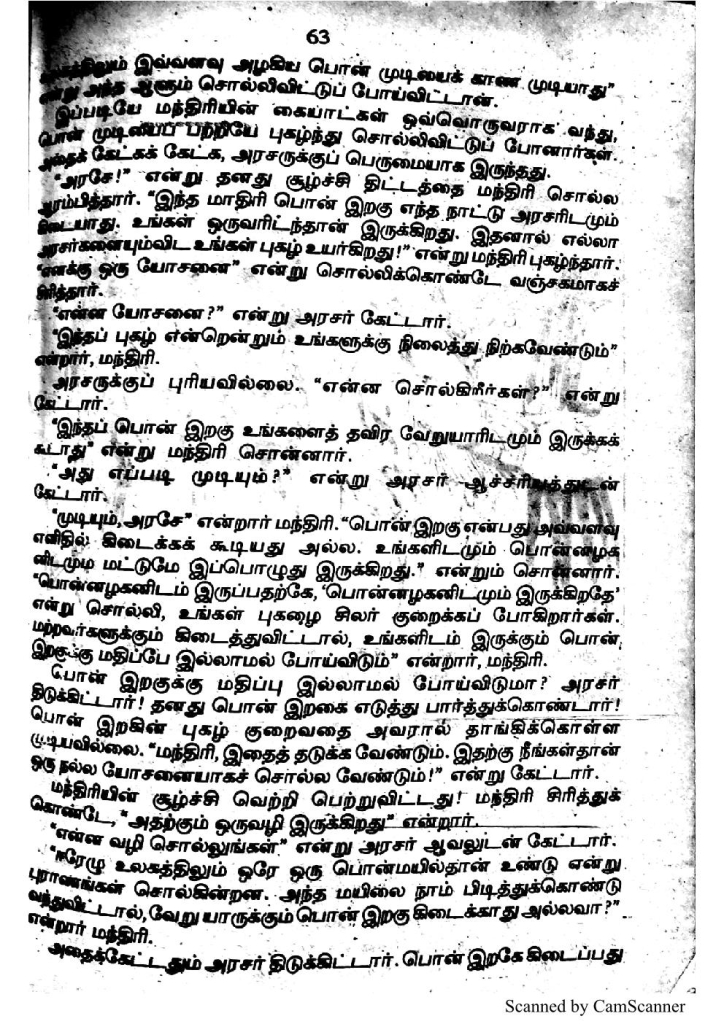 63
இவ்வளவு அழகிய பொன் முடியைக் காண முடியாது"
அந்த ஆளும் சொல்லிவிட்டுப் போய்விட்டான்.
இப்படியே மந்திரியின் கையாட்கள் ஒவ்வொருவராக வந்து,
பொன் முடியைப் பற்றியே புகழ்ந்து சொல்லிவிட்டுப் போனார்கள்.
அதைக் கேட்கக் கேட்க, அரசருக்குப் பெருமையாக இருந்தது.
"அரசே!" என்று தனது சூழ்ச்சி திட்டத்தை மந்திரி சொல்ல
ஆரம்பித்தார். "இந்த மாதிரி பொன் இறகு எந்த நாட்டு அரசரிடமும்
கிடையாது. உங்கள் ஒருவரிடந்தான் இருக்கிறது. இதனால் எல்லா
அரசர்களையும்விட உங்கள் புகழ் உயர்கிறது!" என்று மந்திரி புகழ்ந்தார்.
"எனக்கு ஒரு யோசனை" என்று சொல்லிக்கொண்டே வஞ்சகமாகச்
சிரித்தார்.
"என்ன யோசனை?" என்று அரசர் கேட்டார்.
"இந்தப் புகழ் என்றென்றும் உங்களுக்கு நிலைத்து நிற்கவேண்டும்"
என்றார், மந்திரி.
அரசருக்குப் புரியவில்லை. "என்ன சொல்கிறீர்கள்?" என்று
கேட்டார்.
"இந்தப் பொன் இறகு உங்களைத் தவிர வேறுயாரிடமும் இருக்கக்
கூடாது" என்று மந்திரி சொன்னார்.
"அது எப்படி முடியும்?" என்று அரசர் ஆச்சரியத்துடன்
கேட்டார்.
"முடியும், அரசே" என்றார் மந்திரி. "பொன் இறகு என்பது அவ்வளவு
எளிதில் கிடைக்கக் கூடியது அல்ல. உங்களிடமும் பொன்னழக
னிடமும் மட்டுமே இப்பொழுது இருக்கிறது." என்றும் சொன்னார்.
"பொன்னழகனிடம் இருப்பதற்கே, 'பொன்னழகனிடமும் இருக்கிறதே'
என்று சொல்லி, உங்கள் புகழை சிலர் குறைக்கப் போகிறார்கள்.
மற்றவர்களுக்கும் கிடைத்துவிட்டால், உங்களிடம் இருக்கும் பொன்
இறகுக்கு மதிப்பே இல்லாமல் போய்விடும்" என்றார், மந்திரி.
பொன் இறகுக்கு மதிப்பு இல்லாமல் போய்விடுமா? அரசர்
திடுக்கிட்டார்! தனது பொன் இறகை எடுத்து பார்த்துக்கொண்டார்!
பொன் இறகின் புகழ் குறைவதை அவரால் தாங்கிக்கொள்ள
முடியவில்லை. "மந்திரி, இதைத் தடுக்க வேண்டும். இதற்கு நீங்கள்தான்
ஒரு நல்ல யோசனையாகச் சொல்ல வேண்டும்!" என்று கேட்டார்.
மந்திரியின் சூழ்ச்சி வெற்றி பெற்றுவிட்டது! மந்திரி சிரித்துக்
கொண்டே, "அதற்கும் ஒருவழி இருக்கிறது" என்றார்.
"என்ன வழி சொல்லுங்கள்" என்று அரசர் ஆவலுடன் கேட்டார்.
"ஈரேழு உலகத்திலும் ஒரே ஒரு பொன்மயில்தான் உண்டு என்று
புராணங்கள் சொல்கின்றன. அந்த மயிலை நாம் பிடித்துக்கொண்டு
வந்துவிட்டால், வேறு யாருக்கும் பொன் இறகு கிடைக்காது அல்லவா?"
என்றார் மந்திரி.
அதைக்கேட்டதும் அரசர் திடுக்கிட்டார். பொன் இறகே கிடைப்பது
Scanned by CamScanner